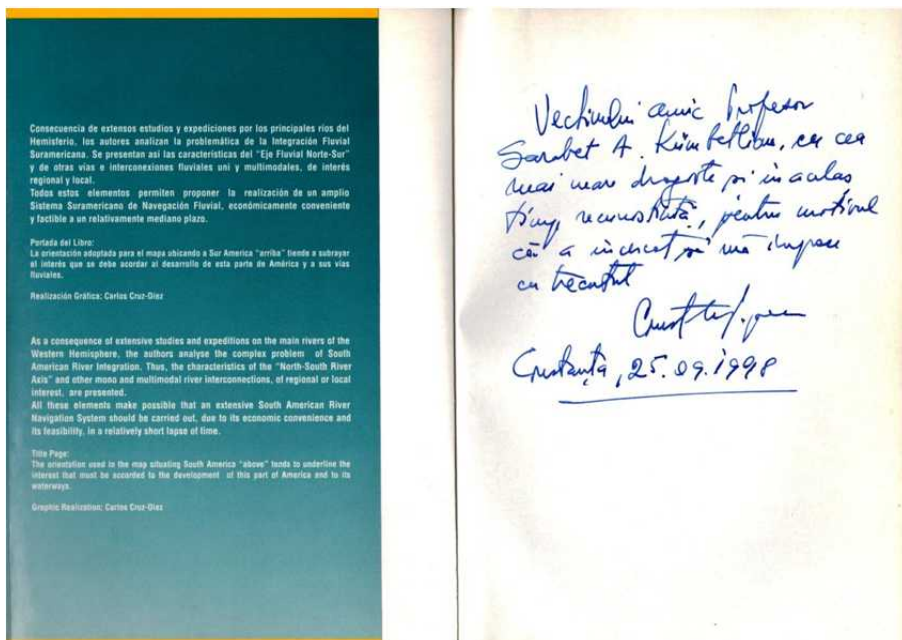 Consecuencia de extensos estudios y expediciones por los principales ríos del
Hemisferio, los autores analizan la problemática de la Integración Fluvial
Suramericana. Se presentan así las características del "Eje Fluvial Norte-Sur"
y de otras vías e interconexiones fluviales uni y multimodales, de interés
regional y local.
Todos estos elementos permiten proponer la realización de un amplio
Sistema Suramericano de Navegación Fluvial, económicamente conveniente
y factible a un relativamente mediano plazo.
Portada del Libro:
La orientación adoptada para el mapa ubicando a Sur America "arriba" tiende a subrayar
el interés que se debe acordar al desarrollo de esta parte de América y a sus vías
fluviales.
Realización Gráfica: Carlos Cruz-Diez
As a consequence of extensive studies and expeditions on the main rivers of the
Western Hemisphere, the authors analyse the complex problem of South
American River Integration. Thus, the characteristics of the "North-South River
Axis" and other mono and multimodal river interconnections, of regional or local
interest, are presented.
All these elements make possible that an extensive South American River
Navigation System should be carried out, due to its economic convenience and
its feasibility, in a relatively short lapse of time.
Title Page:
The orientation used to the map situating South America "above" tends to underline the
interest that must be accorded to the development of this part of America and to its
waterways.
Graphic Realization: Carlos Cruz-Diez
Vechiului amic Profesor
Garabet A. Kümbetlian, cu cea
mai mare dragoste și în acelas
timp recunostință, pentru motivul
că a încercat să mă împace
cu trecutul
Constanța, 25.09.1998